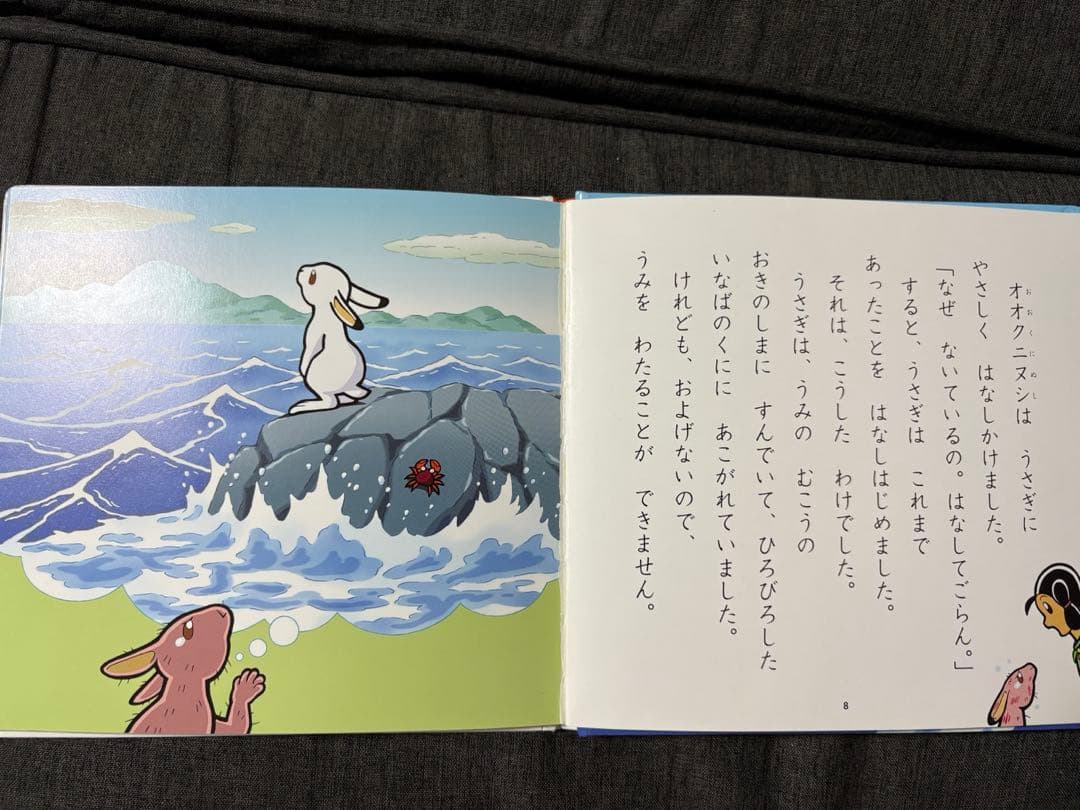 オオクニヌシは うさぎに
おおくにぬし
やさしく はなしかけました。
「なぜ ないているの。はなしてごらん。」
すると、うさぎは これまで
あったことを はなしはじめました。
それは、こうした わけでした。
うさぎは、うみの むこうの
おきのしまに すんでいて、ひろびろした
いなばのくにに あこがれていました。
けれども、およげないので、
うみを わたることが できません。
8